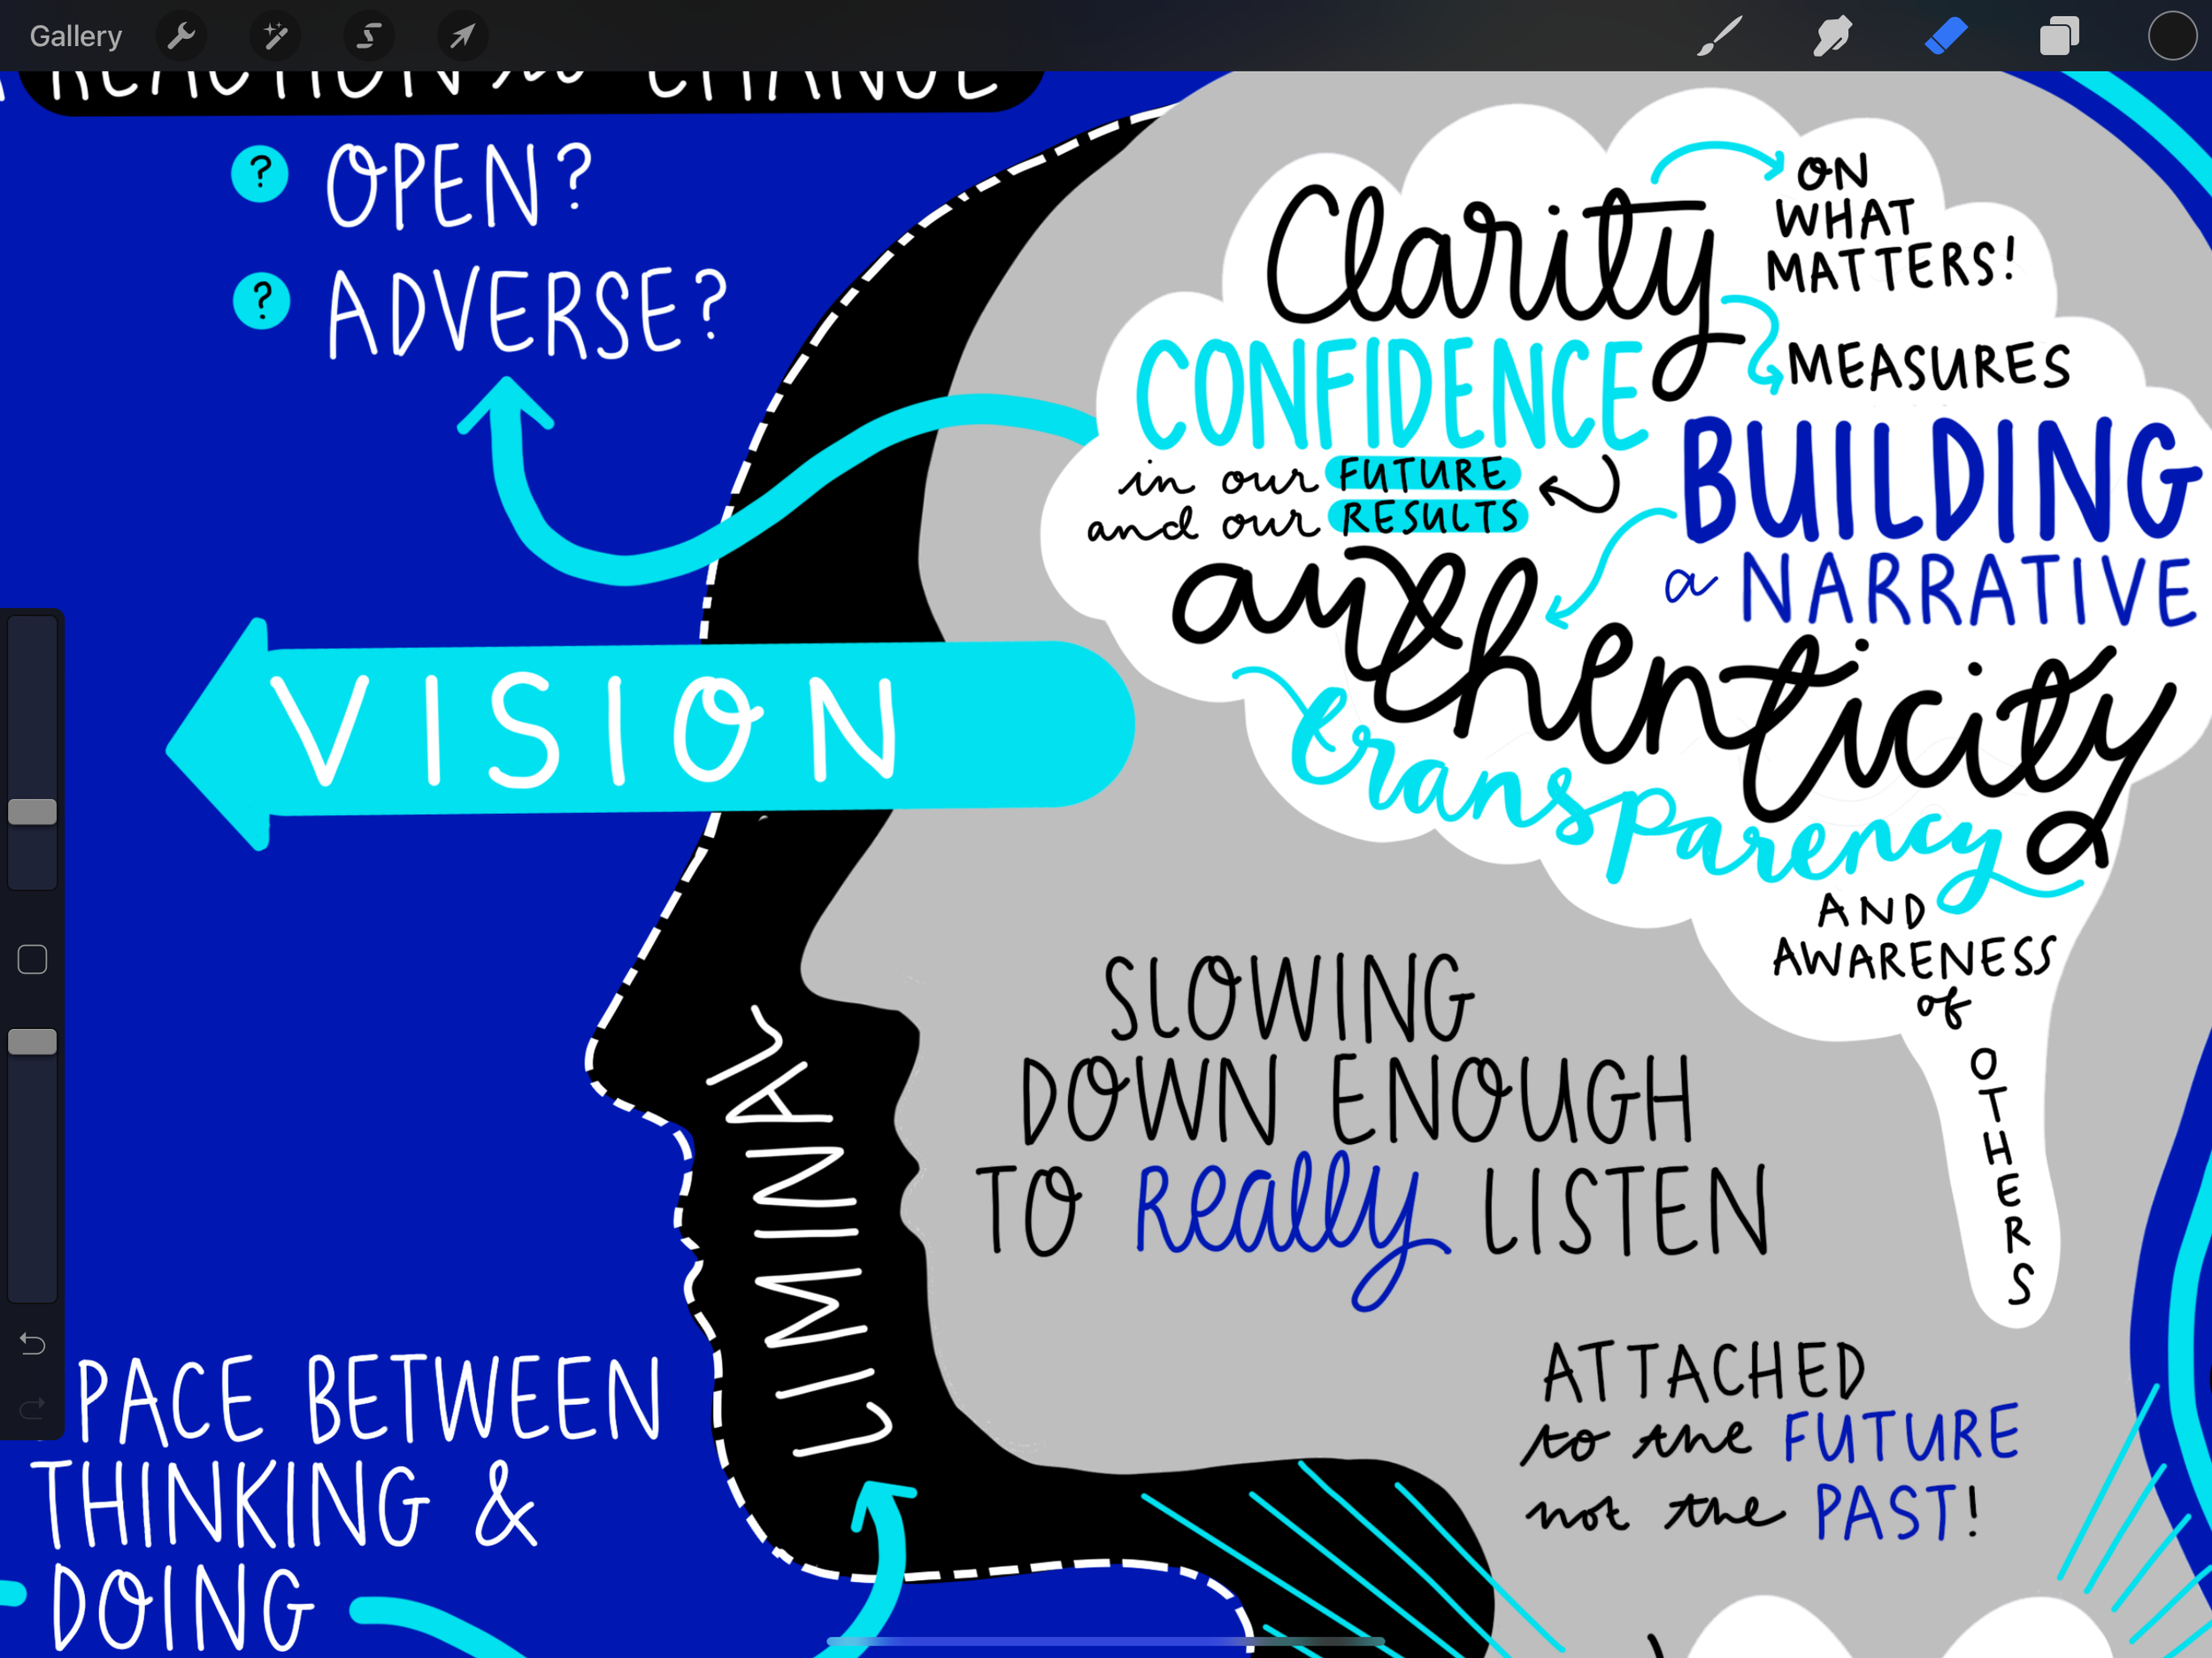 Gallery
REACTION to CHANGE
? OPEN?
? ADVERSE?
VISION
LIMINAL
PACE BETWEEN
THINKING &
DOING
Clarity
ON
WHAT
MATTERS!
MEASURES
CONFIDENCE
in our FUTURE
and our RESULTS
BUILDING
a NARRATIVE
authenticity
transparency
AND
AWARENESS
of
OTHERS
SLOWING
DOWN ENOUGH
TO Really LISTEN
ATTACHED
to the FUTURE
not the PAST!